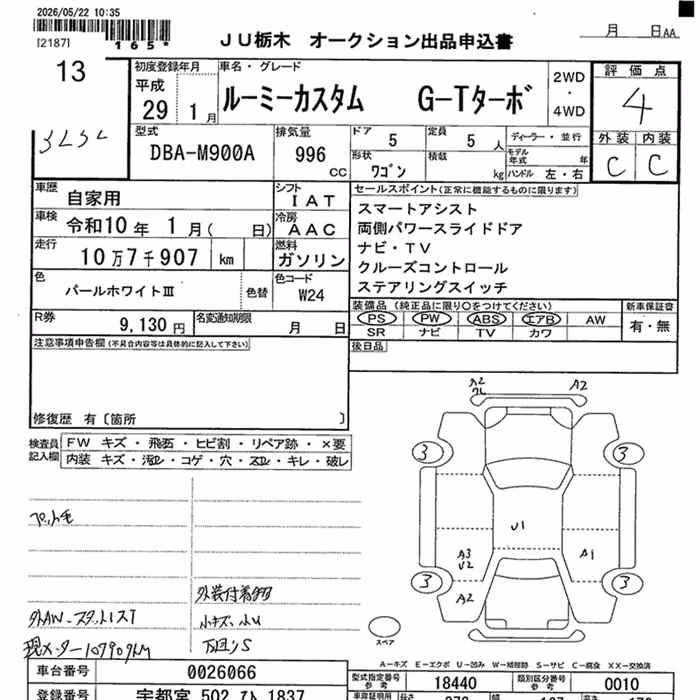 2026/05/22 10:35
[2187]
165*
JU栃木 オークション出品申込書
月 日AA
13
初度登録年月
平成
29 1月
車名・グレード
ルーミーカスタム G-Tターボ
2WD
・
4WD
評価点
4
外装 内装
C C
型式
DBA-M900A
排気量
996 CC
ドア 5
定員 5 人
ディーラー・並行
形状
ワゴン
積載 kg
モデル年式 年
ハンドル 左・右
車歴
自家用
シフト
IAT
車検
令和10年 1月( 日)
冷房
AAC
走行
10万7千907 km
燃料
ガソリン
色
パールホワイトⅢ
色替
色コード
W24
セールスポイント(正常に機能するものに限ります)
スマートアシスト
両側パワースライドドア
ナビ・TV
クルーズコントロール
ステアリングスイッチ
装備品 (純正品に限り○をつけてください)
新車保証書
PS PW ABS エアB AW
有・無
SR ナビ TV カワ
後日品
R券
9,130 円
名変通知期限
月 日
注意事項申告欄(不具合内容等は具体的に記入して下さい)
修復歴 有〔箇所 〕
検査員記入欄
FW キズ・飛石・ヒビ割・リペア跡・×要
内装 キズ・汚レ・コゲ・穴・スレ・キレ・破レ
A2
A2
3 3
U1
A3
U2
A1
A2
3 3
スペア
外AW-スタットレスT
小キズ、小U
現メーター107909km
A-キズ E-エクボ U-凹み W-補修跡 S-サビ C-腐食 XX-交換済
車台番号
0026066
型式指定番号
参考
18440
類別区分番号
参考
0010
登録番号
宇都宮 502 てひ 1837